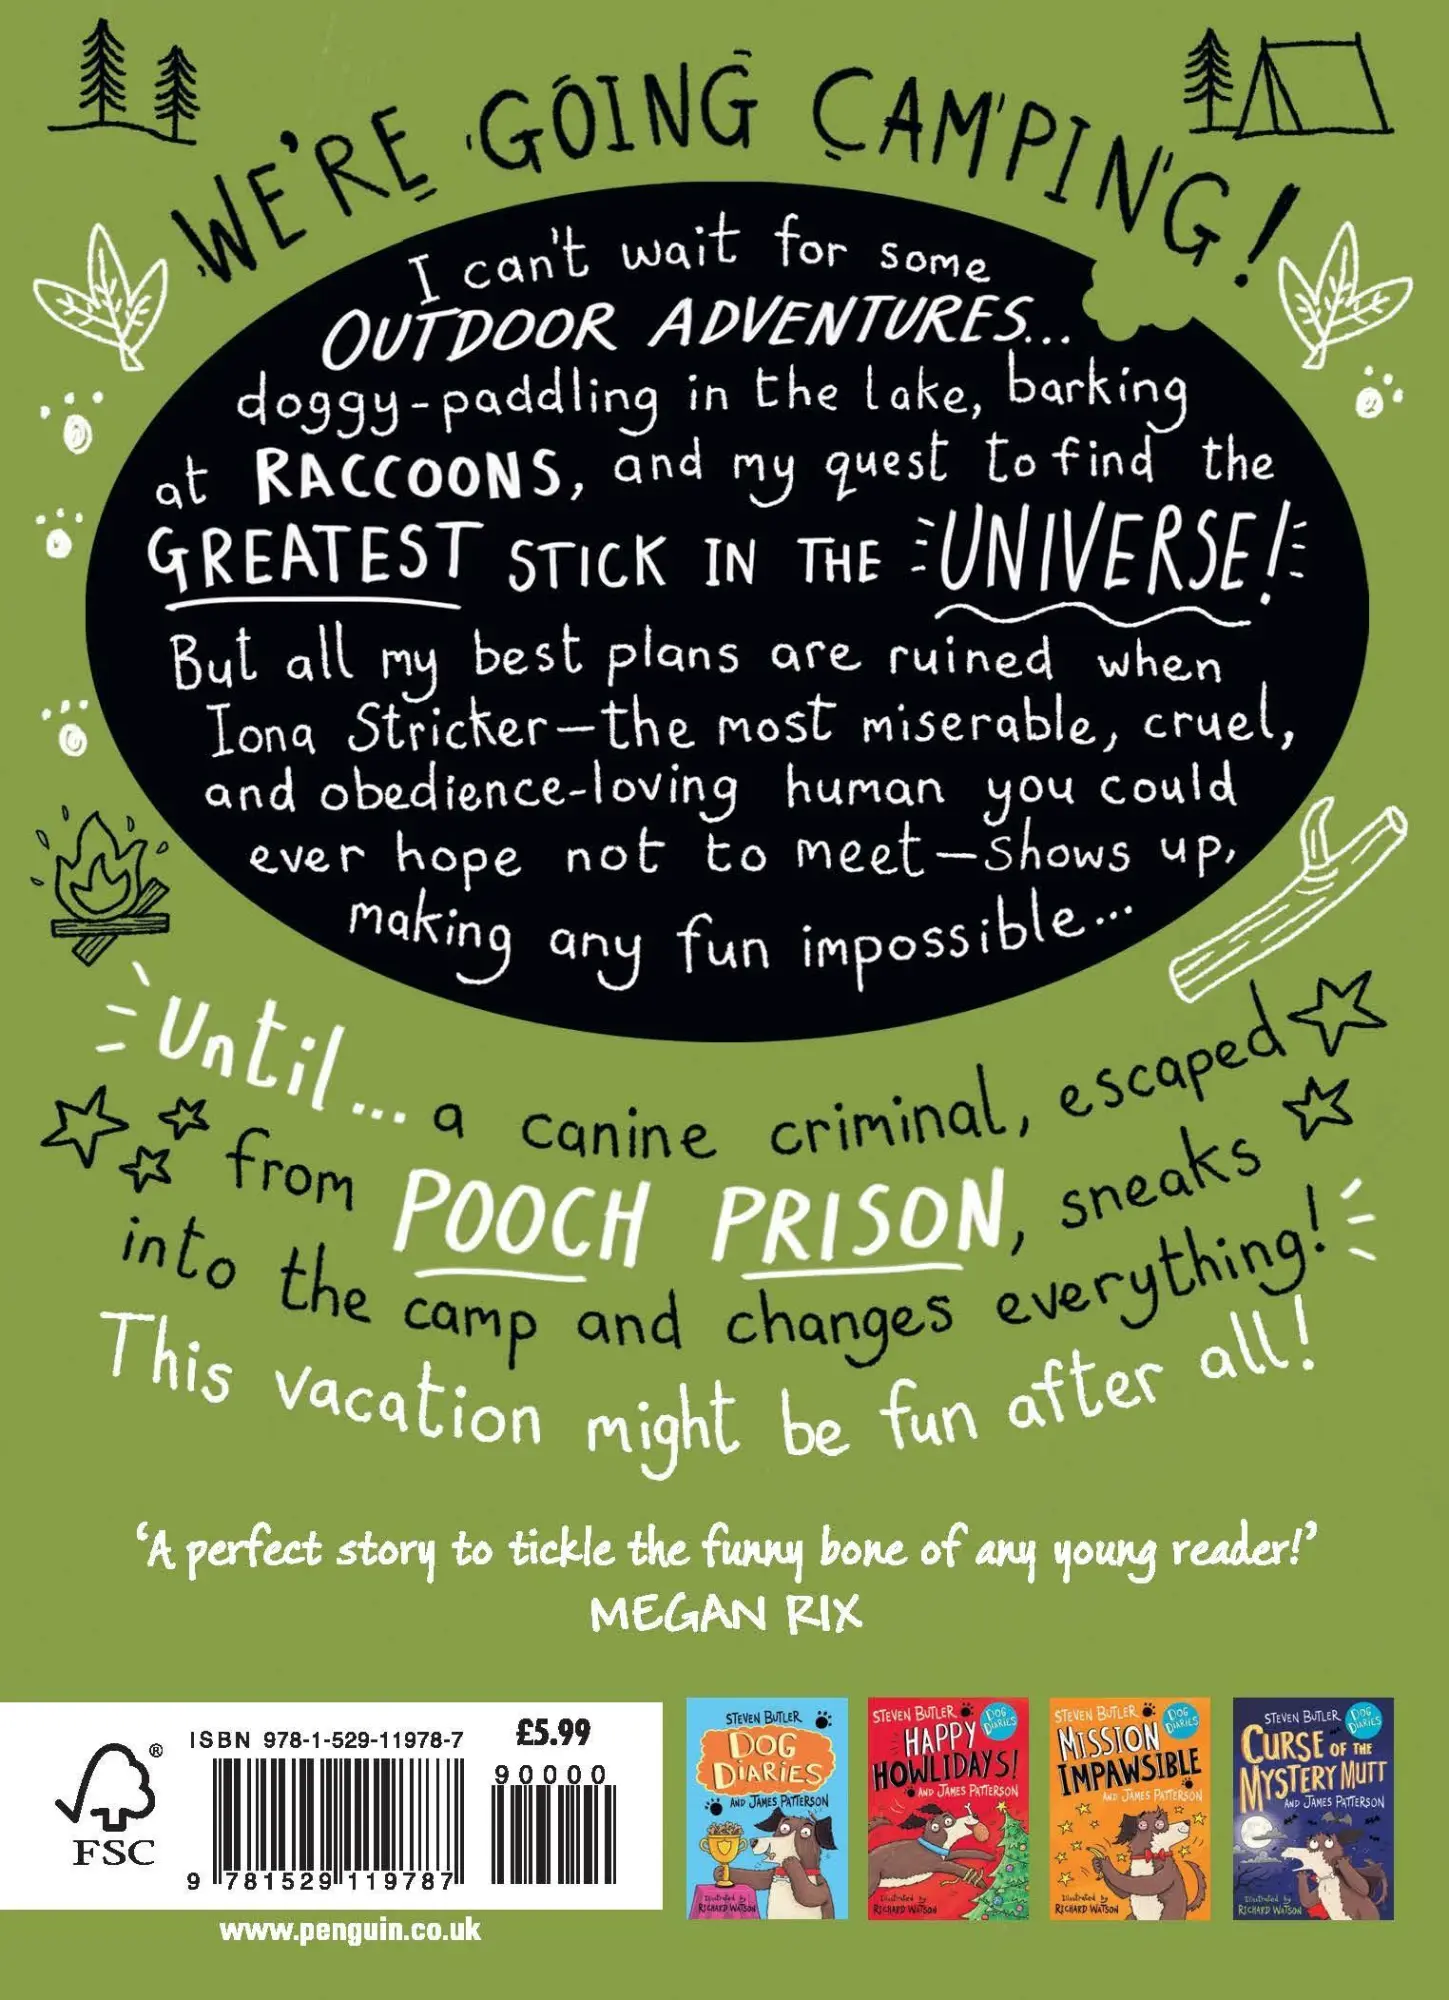 WE'RE GOING CAMPING!
I can't wait for some
OUTDOOR ADVENTURES...
doggy-paddling in the lake, barking
at RACCOONS, and my quest to find the
GREATEST STICK IN THE UNIVERSE!
But all my best plans are ruined when
Iona Stricker—the most miserable, cruel,
and obedience-loving human you could
ever hope not to meet—shows up,
making any fun impossible...
Until... a canine criminal, escaped
from POOCH PRISON, sneaks
into the camp and changes everything!
This vacation might be fun after all!
'A perfect story to tickle the funny bone of any young reader!'
MEGAN RIX
FSC
®
ISBN 978-1-529-11978-7
£5.99
90000
9 781529 119787
www.penguin.co.uk
STEVEN BUTLER
DOG
DIARIES
AND JAMES PATTERSON
Illustrated by
RICHARD WATSON
STEVEN BUTLER
DOG
DIARIES
HAPPY
HOWLIDAYS!
AND JAMES PATTERSON
Illustrated by
RICHARD WATSON
STEVEN BUTLER
DOG
DIARIES
MISSION
IMPAWSIBLE
AND JAMES PATTERSON
Illustrated by
RICHARD WATSON
STEVEN BUTLER
DOG
DIARIES
CURSE OF THE
MYSTERY MUTT
AND JAMES PATTERSON
Illustrated by
RICHARD WATSON